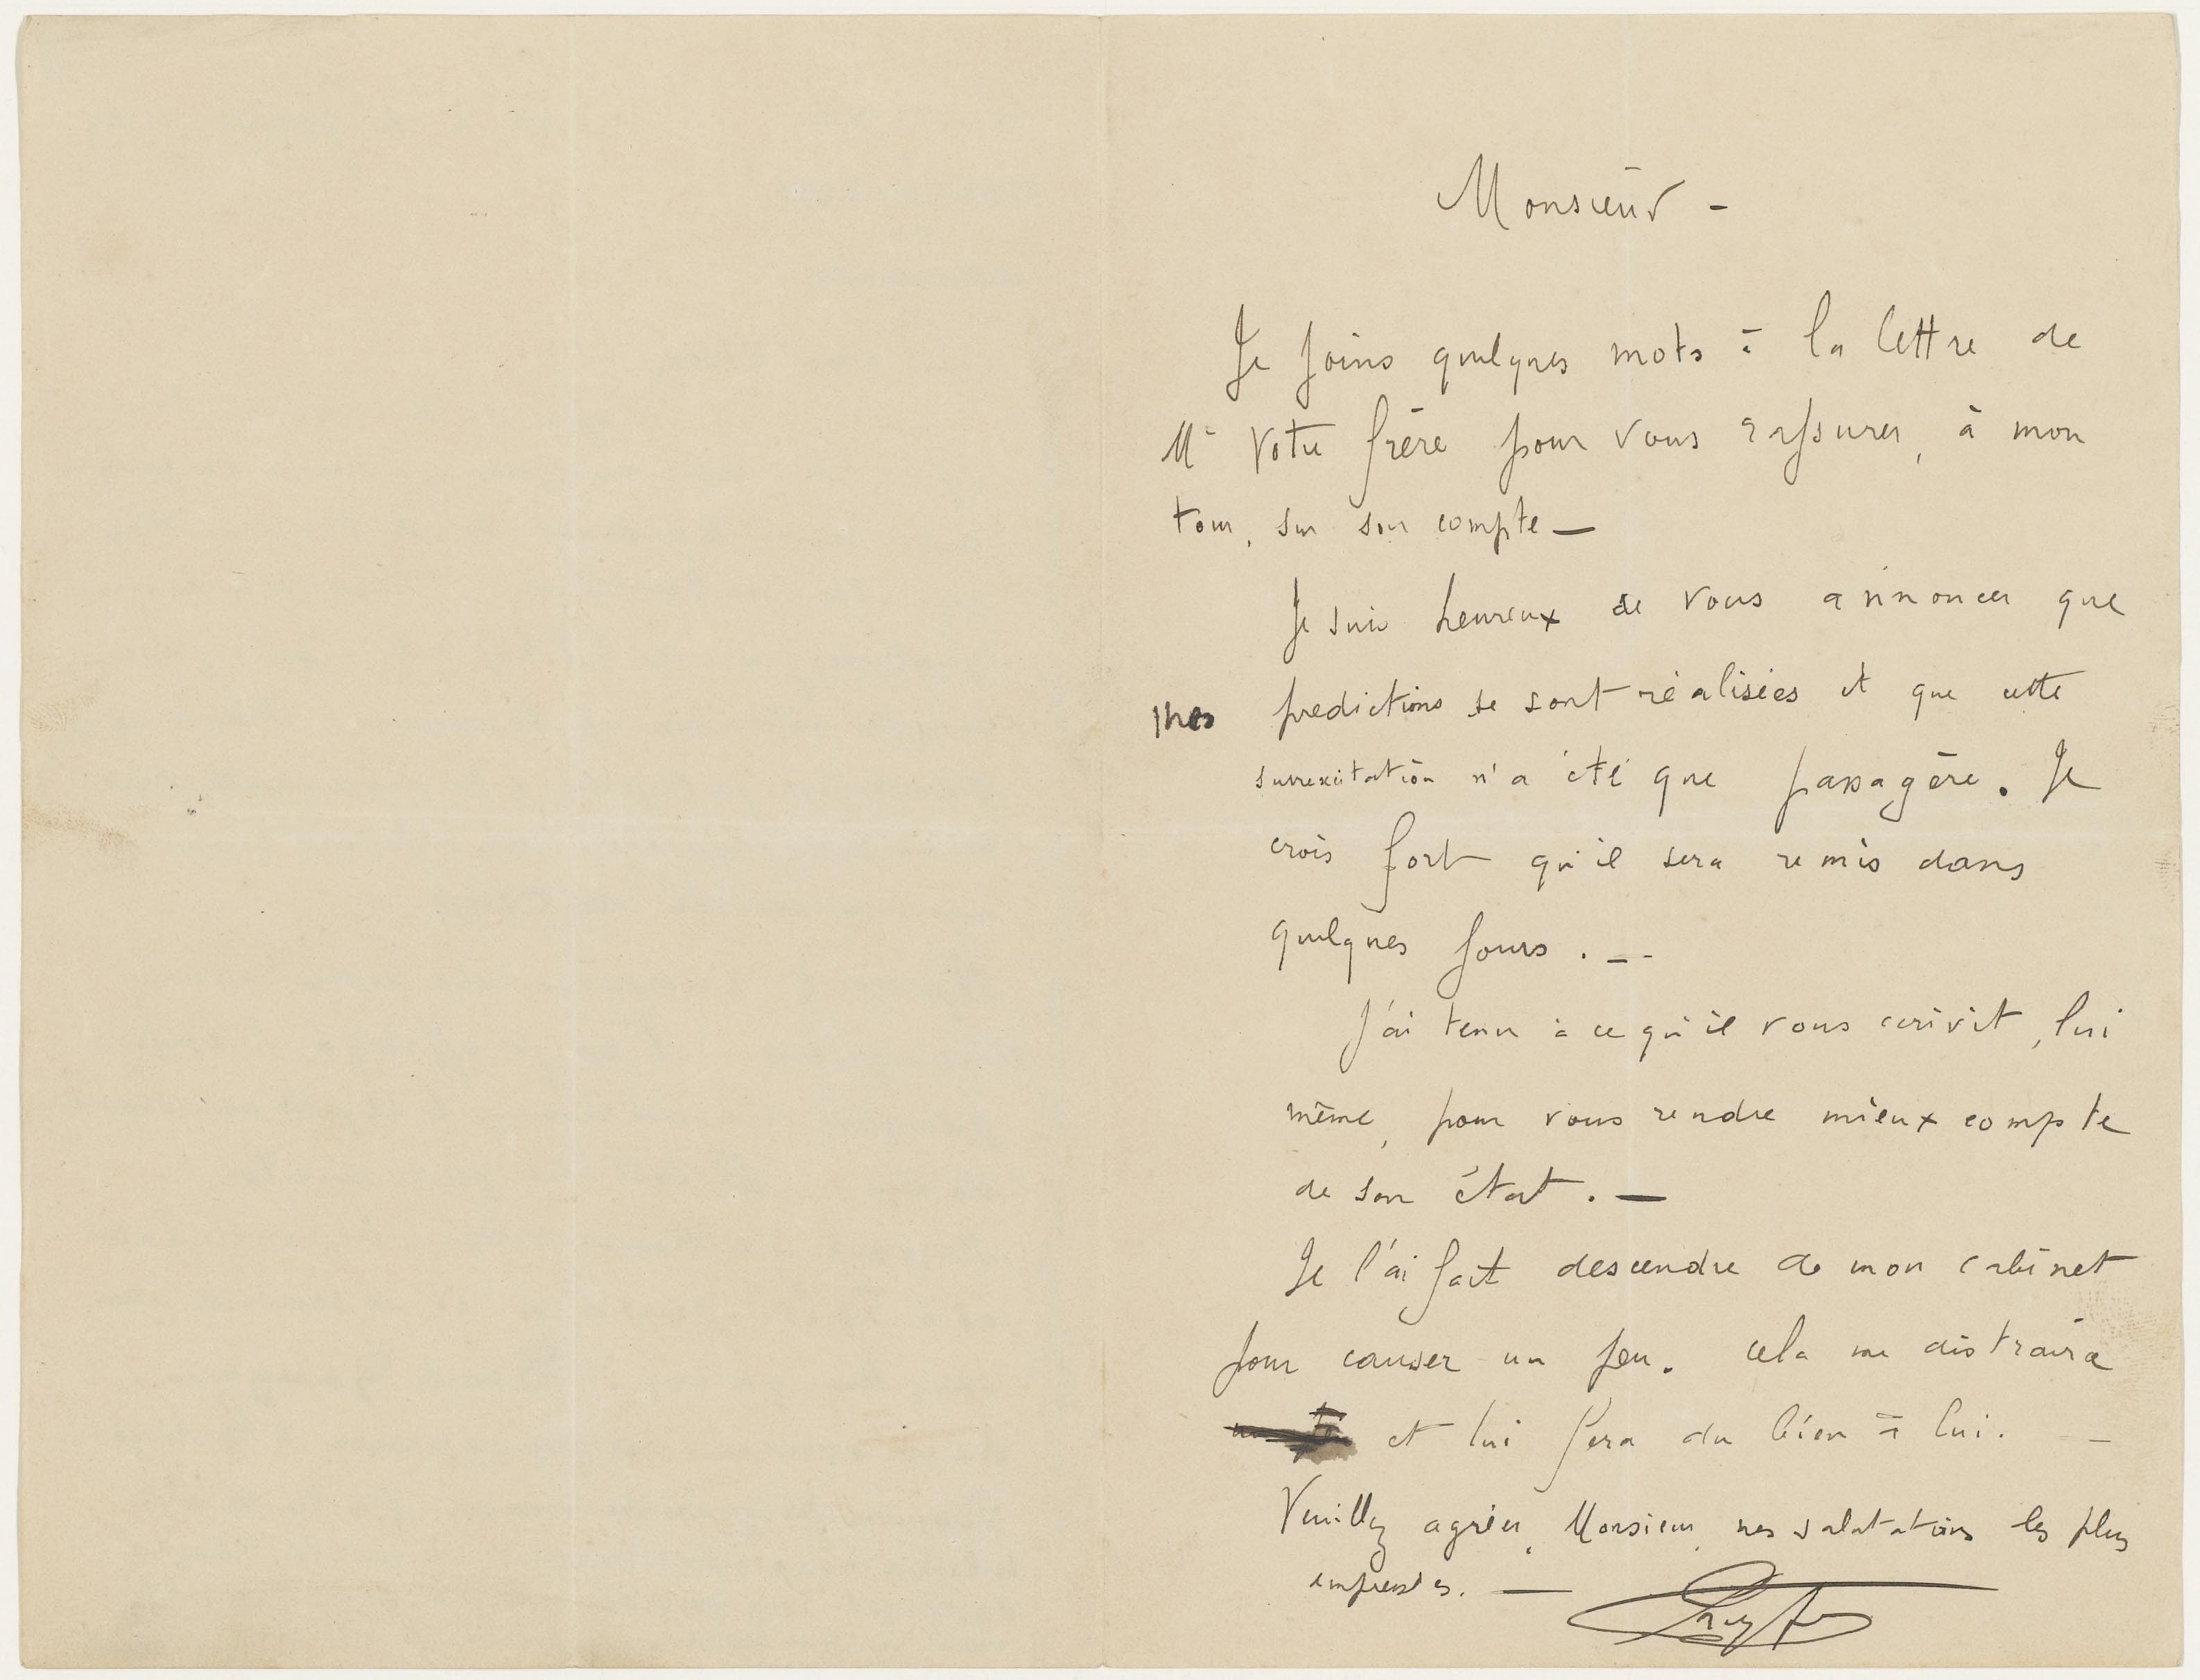 Monsieur -
Je joins quelques mots à la lettre de
Mr Votre frère pour vous rassurer, à mon
tour, sur son compte —
Je suis heureux de vous annoncer que
mes predictions se sont réalisées et que cette
surrexcitation n'a été que passagère. Je
crois fort qu'il sera remis dans
quelques jours . --
J'ai tenu à ce qu'il vous écrivit, lui
même, pour vous rendre mieux compte
de son état. —
Je l'ai fait descendre de mon cabinet
pour causer un peu. cela me distraira
et lui fera du bien à lui. —
Veuillez agréer, Monsieur, mes salutations les plus
empressées. —